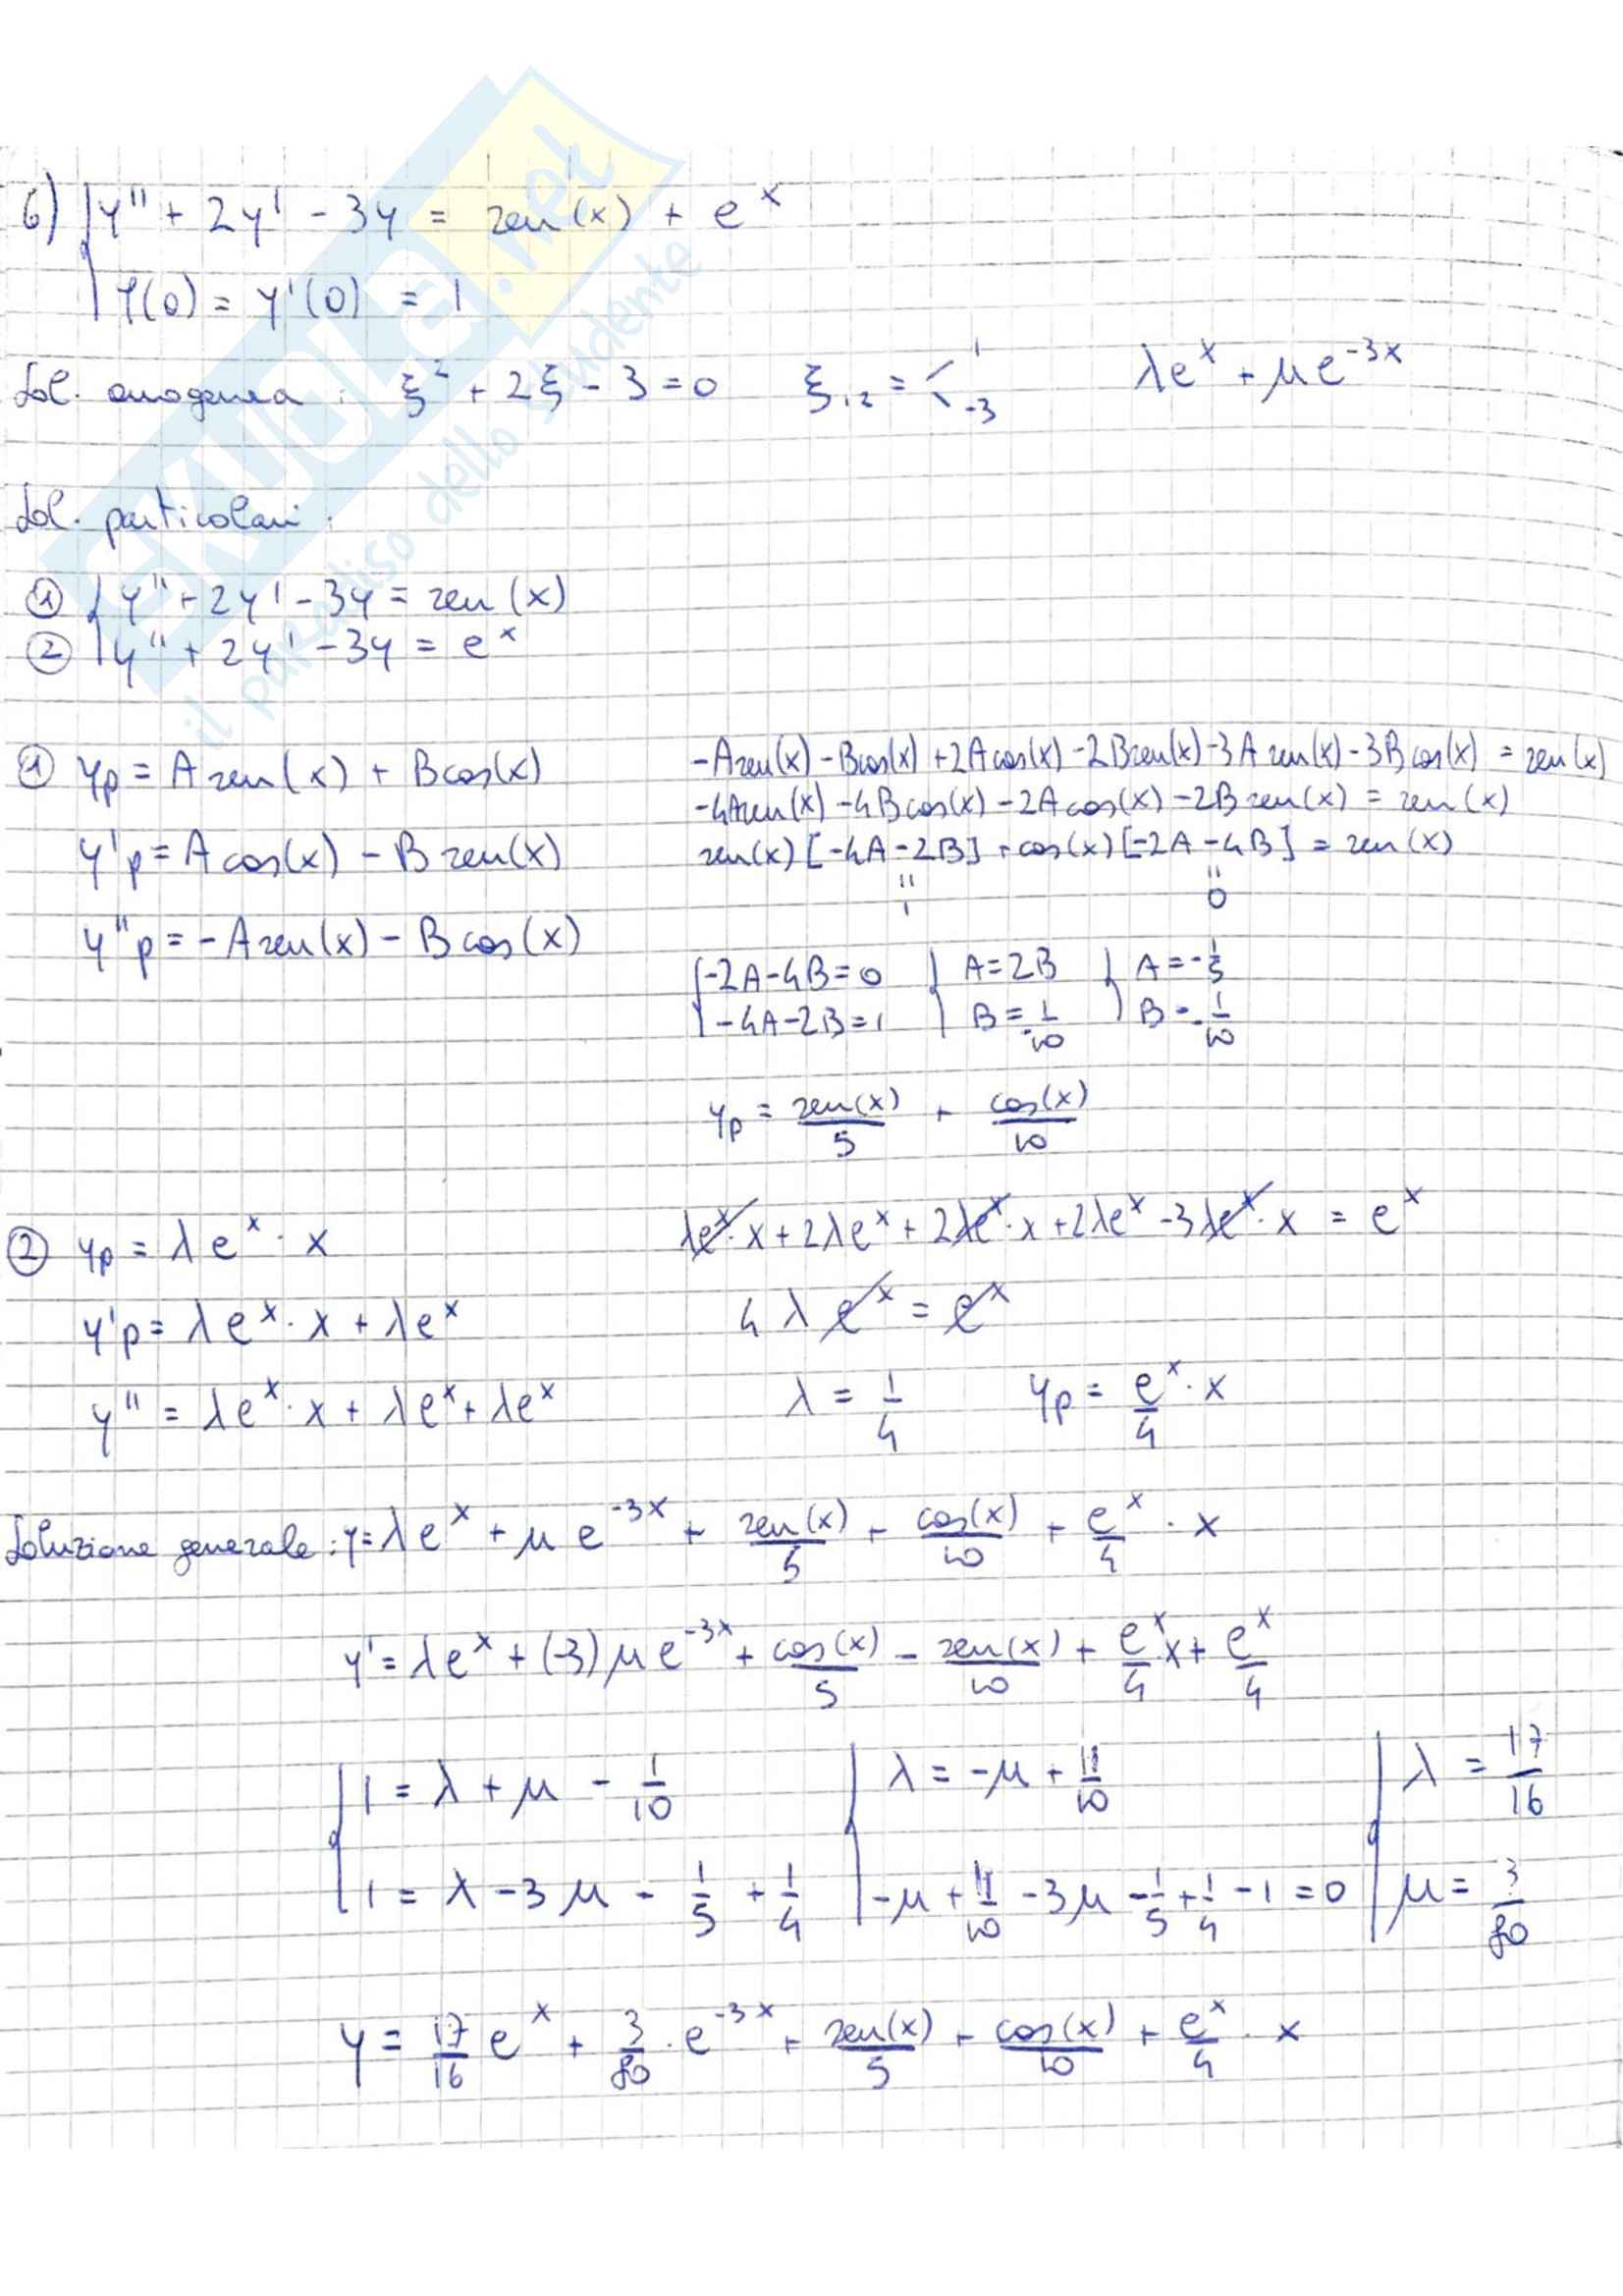 6) { y'' + 2y' - 3y = sen(x) + e^x
y(0) = y'(0) = 1
Sol. omogenea : ξ² + 2ξ - 3 = 0 ξ₁,₂ = < 1 -3 λe^x + μe^-3x
Sol. particolari :
① { y'' + 2y' - 3y = sen(x)
② y'' + 2y' - 3y = e^x
① yp = A sen(x) + B cos(x)
y'p = A cos(x) - B sen(x)
y''p = -A sen(x) - B cos(x)
-A sen(x) - B cos(x) + 2A cos(x) - 2B sen(x) - 3A sen(x) - 3B cos(x) = sen(x)
-4A sen(x) - 4B cos(x) - 2A cos(x) - 2B sen(x) = sen(x)
sen(x) [-4A - 2B] + cos(x) [-2A - 4B] = sen(x)
" "
1 0
{ -2A - 4B = 0 { A = 2B { A = -1/5
-4A - 2B = 1 B = 1/-10 B = -1/10
yp = sen(x)/5 + cos(x)/10
② yp = λe^x · x
y'p = λe^x · x + λe^x
y'' = λe^x · x + λe^x + λe^x
λe^x · x + 2λe^x + 2λe^x · x + 2λe^x - 3λe^x · x = e^x
4 λ e^x = e^x
λ = 1/4 yp = e^x/4 · x
Soluzione generale : y = λe^x + μe^-3x + sen(x)/5 + cos(x)/10 + e^x/4 · x
y' = λe^x + (-3)μe^-3x + cos(x)/5 - sen(x)/10 + e^x/4 x + e^x/4
{ 1 = λ + μ - 1/10 { λ = -μ + 11/10 { λ = 17/16
1 = λ - 3μ - 1/5 + 1/4 -μ + 11/10 - 3μ - 1/5 + 1/4 - 1 = 0 μ = 3/80
y = 17/16 e^x + 3/80 · e^-3x + sen(x)/5 + cos(x)/10 + e^x/4 · x
SKUOLA.net
il paradiso dello studente